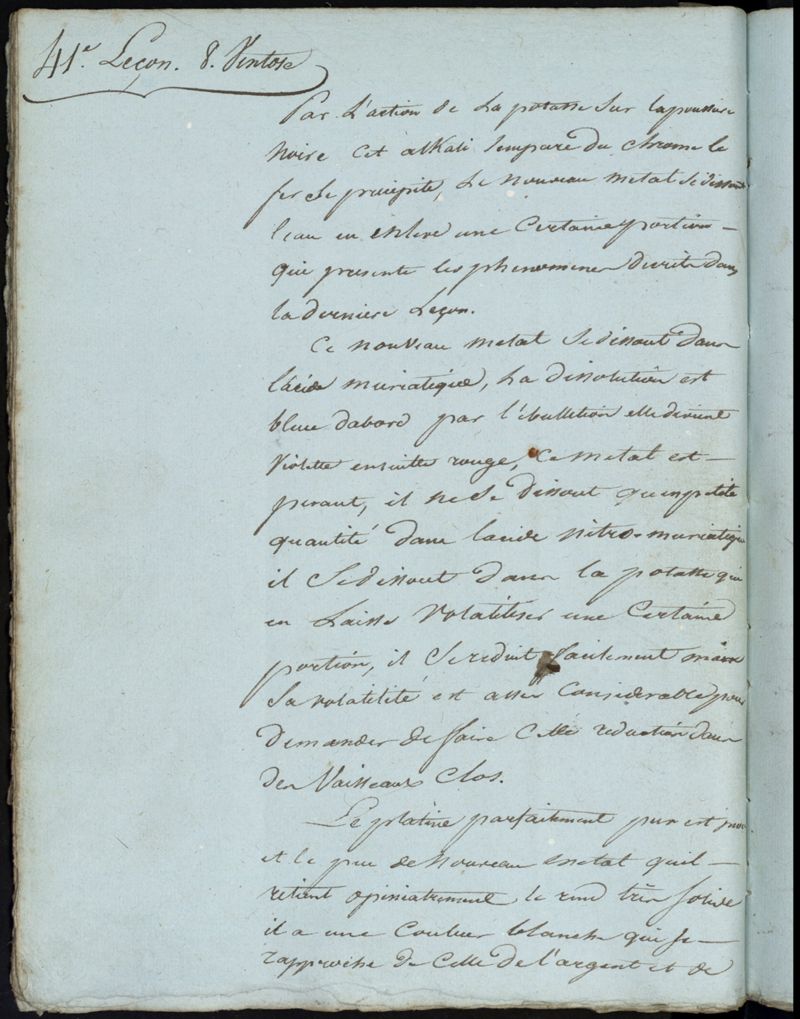 41e. Leçon. 8. Ventose
Par L'action de La potasse Sur la poussiere
Noire Cet alkali Sempare du chrome le
fer Se precipite, Le nouveau metal Se dissout
leau en enleve une Certaine portion
qui presente les phenomenes decrits dans
la derniere Leçon.
Ce nouveau metal Se dissout dans
lacide muriatique, La dissolution est
bleue dabord par l'ébullition elle devient
violette ensuitte rouge, Ce metal est
pesant, il ne Se dissout qu'en petite
quantité dans lacide nitro-muriatique
il Se dissout dans la potasse qui
en Laisse Volatiliser une Certaine
portion, il Se reduit facilement mais
Sa volatilité est assez Considerable pour
demander de faire Cette reduction dans
des Vaisseaux Clos.
Le platine parfaitement pur est mou
et le peu de nouveau metal quil
retient opiniatrement le rend très solide
il a une Couleur blanche qui se
rapproche de Celle de l'argent et de